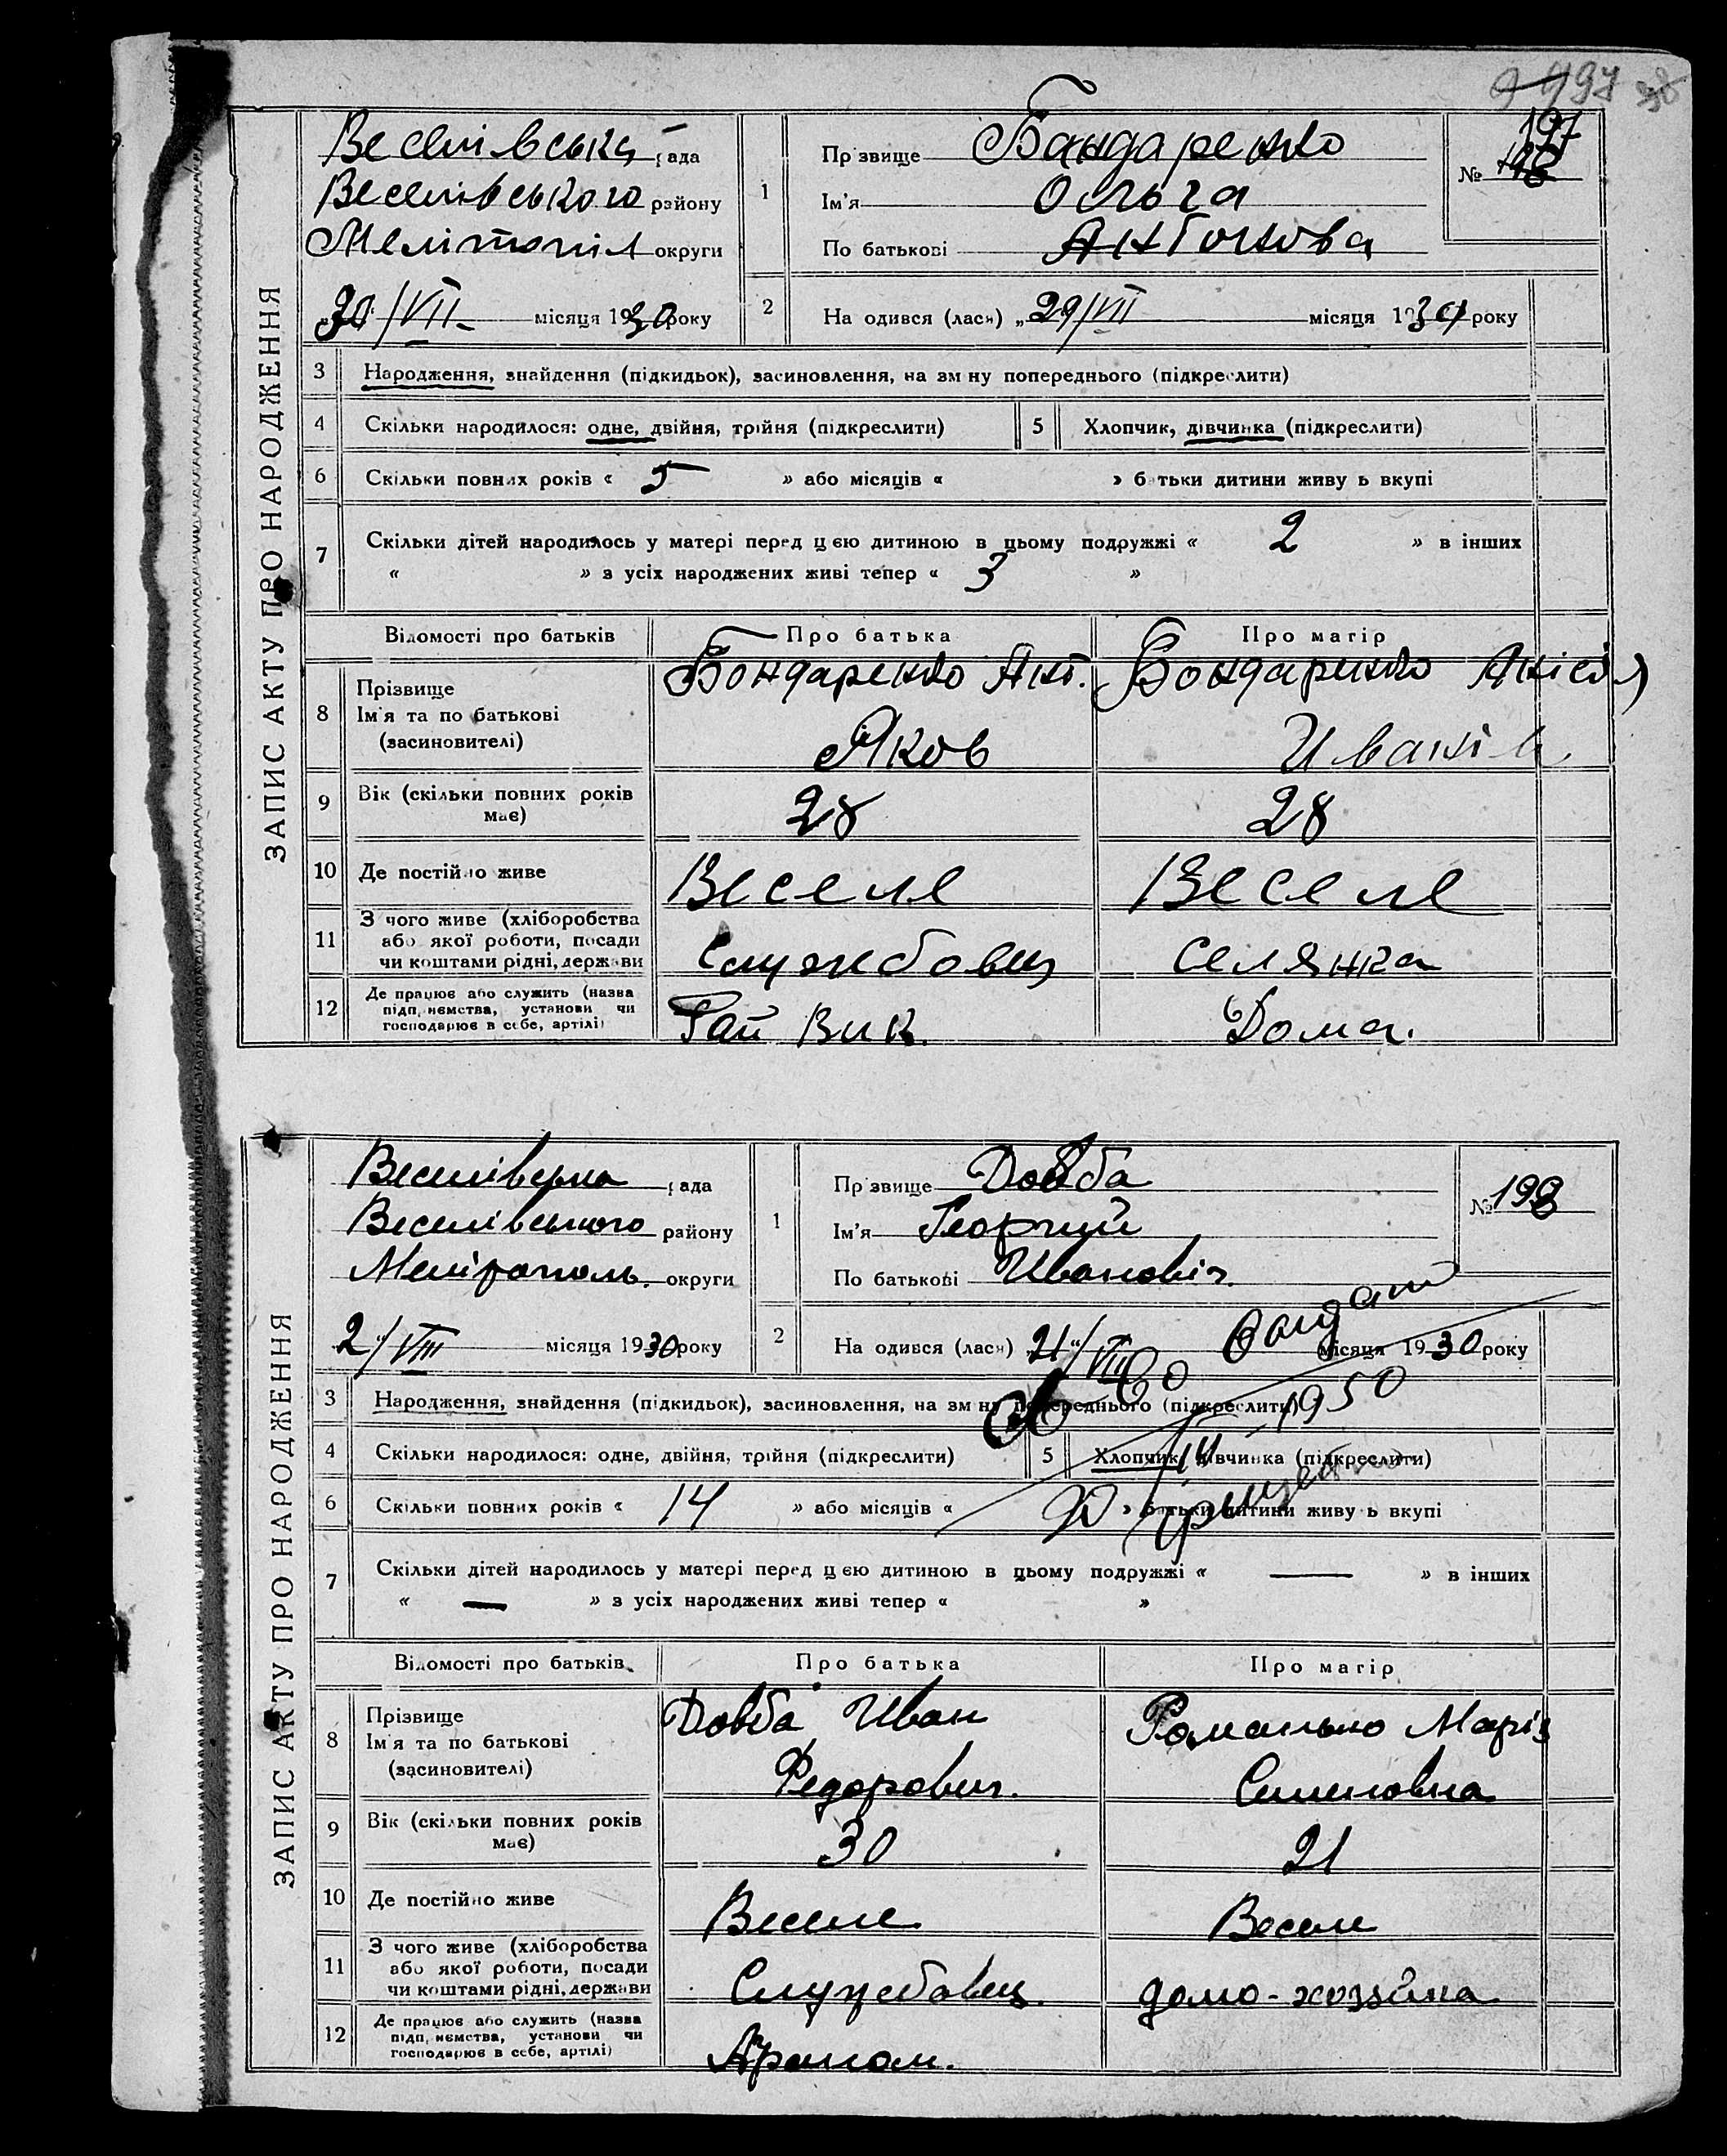 497
ЗАПИС АКТУ ПРО НАРОДЖЕННЯ
Веселівська рада
Веселівського району
Мелітопіл округи
30/VII місяця 1930 року
1
Прізвище Бандаренко
Ім'я Ольга
По батькові Антонова
№ 197
2
На одився (лася) „29/VII місяця 1930 року
3 Народження, знайдення (підкидьок), засиновлення, на зм ну попереднього (підкреслити)
4 Скільки народилося: одне, двійня, трійня (підкреслити) 5 Хлопчик, дівчинка (підкреслити)
6 Скільки повних років « 5 » або місяців « » б тьки дитини живу ь вкупі
7 Скільки дітей народилось у матері перед цєю дитиною в цьому подружжі « 2 » в інших
« » з усіх народжених живі тепер « 3 »
Відомості про батьків Про батька Про матір
8 Прізвище Ім'я та по батькові (засиновителі)
Бондаренко Ант. Бондаренко Анісія
Яков Иванів
9 Вік (скільки повних років має) 28 28
10 Де постійно живе Веселе Веселе
11 З чого живе (хліборобства або якої роботи, посади чи коштами рідні, держави Службовец селянка
12 Де працює або служить (назва підп, иємства, установи чи господарює в себе, артілі) Рай Вик. Дома.
ЗАПИС АКТУ ПРО НАРОДЖЕННЯ
Веселівська рада
Веселівського району
Меліτополь. округи
2/VIII місяця 1930 року
1
Прізвище Довба
Ім'я Георгий
По батькові Иванович.
№ 198
2
На одився (лася) „21/VII місяця 1930 року
3 Народження, знайдення (підкидьок), засиновлення, на зм ну попереднього (підкреслити)
1950
4 Скільки народилося: одне, двійня, трійня (підкреслити) 5 Хлопчик, дівчинка (підкреслити)
6 Скільки повних років « 14 » або місяців « » батьки дитини живу ь вкупі
7 Скільки дітей народилось у матері перед цєю дитиною в цьому подружжі « — » в інших
« — » з усіх народжених живі тепер « »
Відомості про батьків Про батька Про матір
8 Прізвище Ім'я та по батькові (засиновителі)
Довба Иван Романько Марія
Федорович. Семеновна
9 Вік (скільки повних років має) 30 21
10 Де постійно живе Веселе Веселе
11 З чого живе (хліборобства або якої роботи, посади чи коштами рідні, держави Службовец. домо-хозяйка
12 Де працює або служить (назва підп, иємства, установи чи господарює в себе, артілі) Агроном.